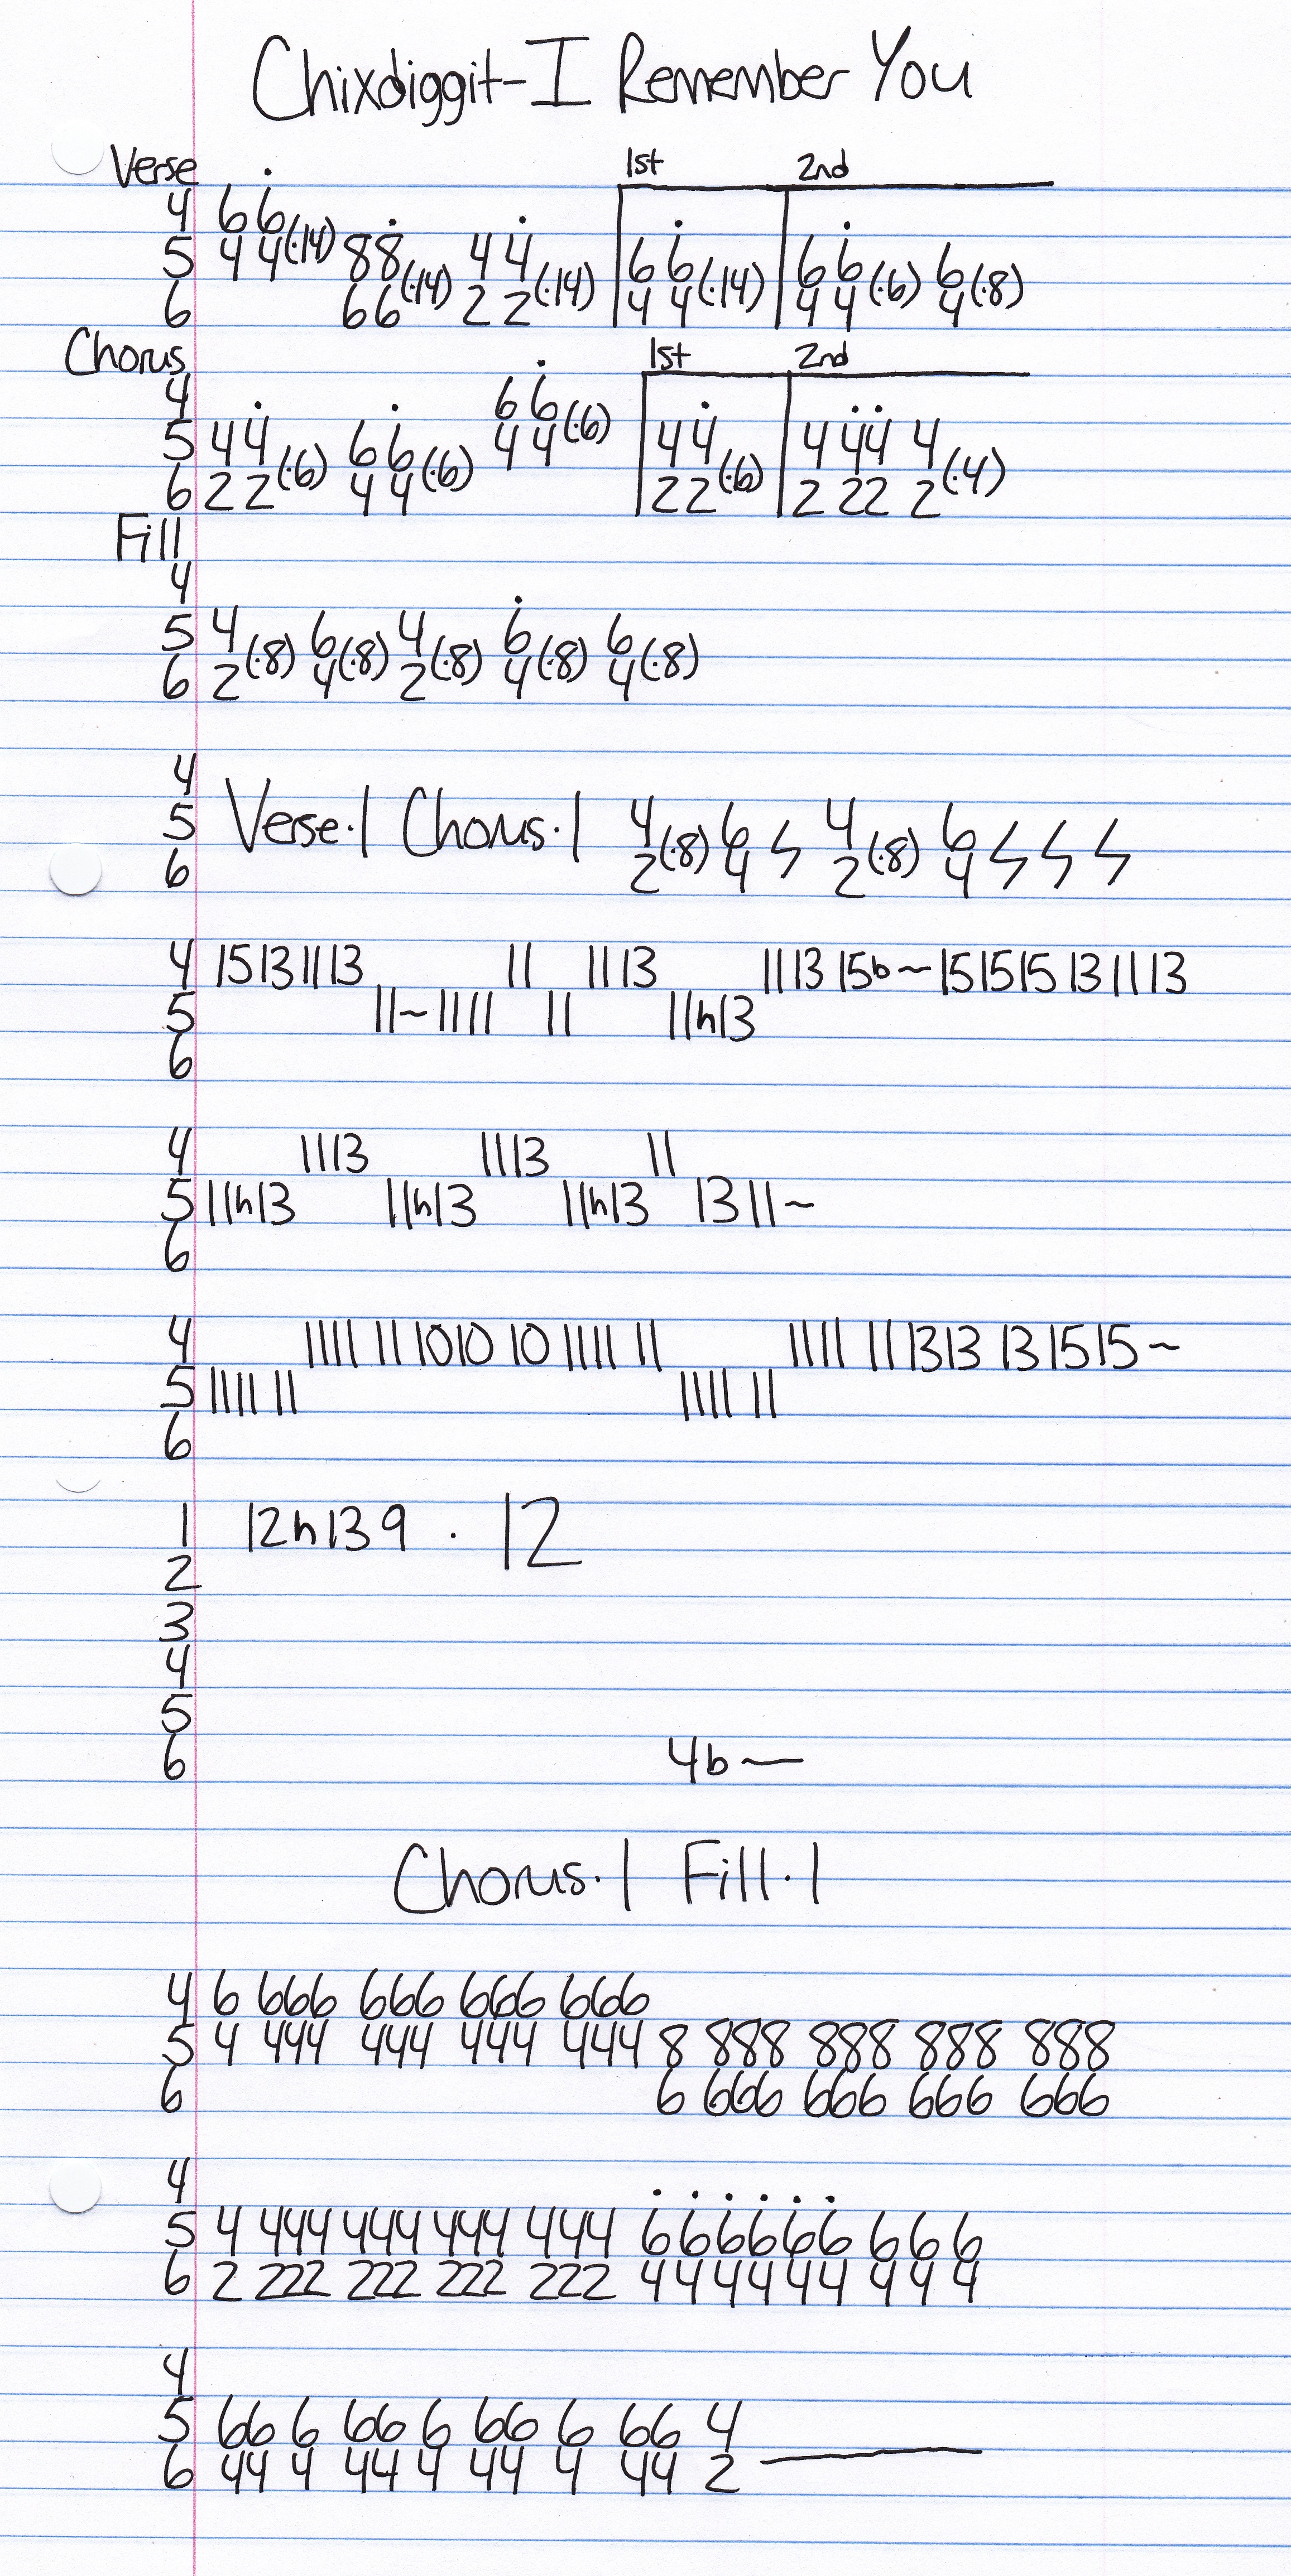 Chixdiggit-I Remember You
Verse 1st 2nd
4 6 6
5 4 4(·14) 8 8 4 4 6 6 6 6 6
6 6 6(·14) 2 2(·14) 4 4(·14) 4 4(·6) 4(·8)
Chorus 1st 2nd
4 6 6
5 4 4 6 6 4 4(·6) 4 4 4 44 4
6 2 2(·6) 4 4(·6) 2 2(·6) 2 22 2(·4)
Fill
4
5 4 6 4 6 6
6 2(·8) 4(·8) 2(·8) 4(·8) 4(·8)
4
5 Verse·| Chorus·| 4 6 4 6
6 2(·8) 4 2(·8) 4
4 15131113 11 1113 1113 15b~151515 131113
5 11~1111 11 11h13
6
4 1113 1113 11
5 11h13 11h13 11h13 1311~
6
4 1111 11 1010 10 1111 11 1111 11 1313 13 1515~
5 1111 11 1111 11
6
1 12h139 · 12
2
3
4
5
6 4b—
Chorus·| Fill·|
4 6 666 666 666 666
5 4 444 444 444 444 8 888 888 888 888
6 6 666 666 666 666
4
5 4 444 444 444 444 666666 6 6 6
6 2 222 222 222 222 444444 4 4 4
4
5 66 6 66 6 66 6 66 4
6 44 4 44 4 44 4 44 2—